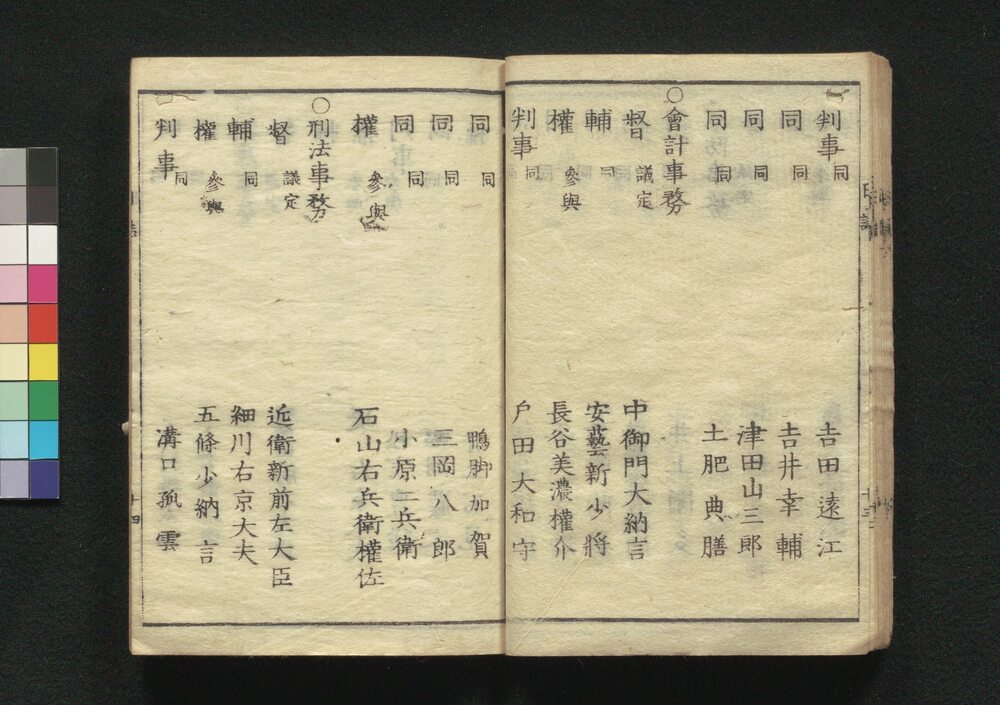 判事 同 吉田遠江
同 同 吉井幸輔
同 同 津田山三郎
同 同 土肥典膳
○會計事務
督 議定 中御門大納言
輔 同 安藝新少將
權 參與 長谷美濃權介
判事 同 戸田大和守
同 同 鴨脚加賀
同 同 三岡八郎
同 同 小原二兵衛
權 參與 石山右兵衛權佐
○刑法事務
督 議定 近衛新前左大臣
輔 同 細川右京大夫
權 參與 五條少納言
判事 同 溝口孤雲
十四